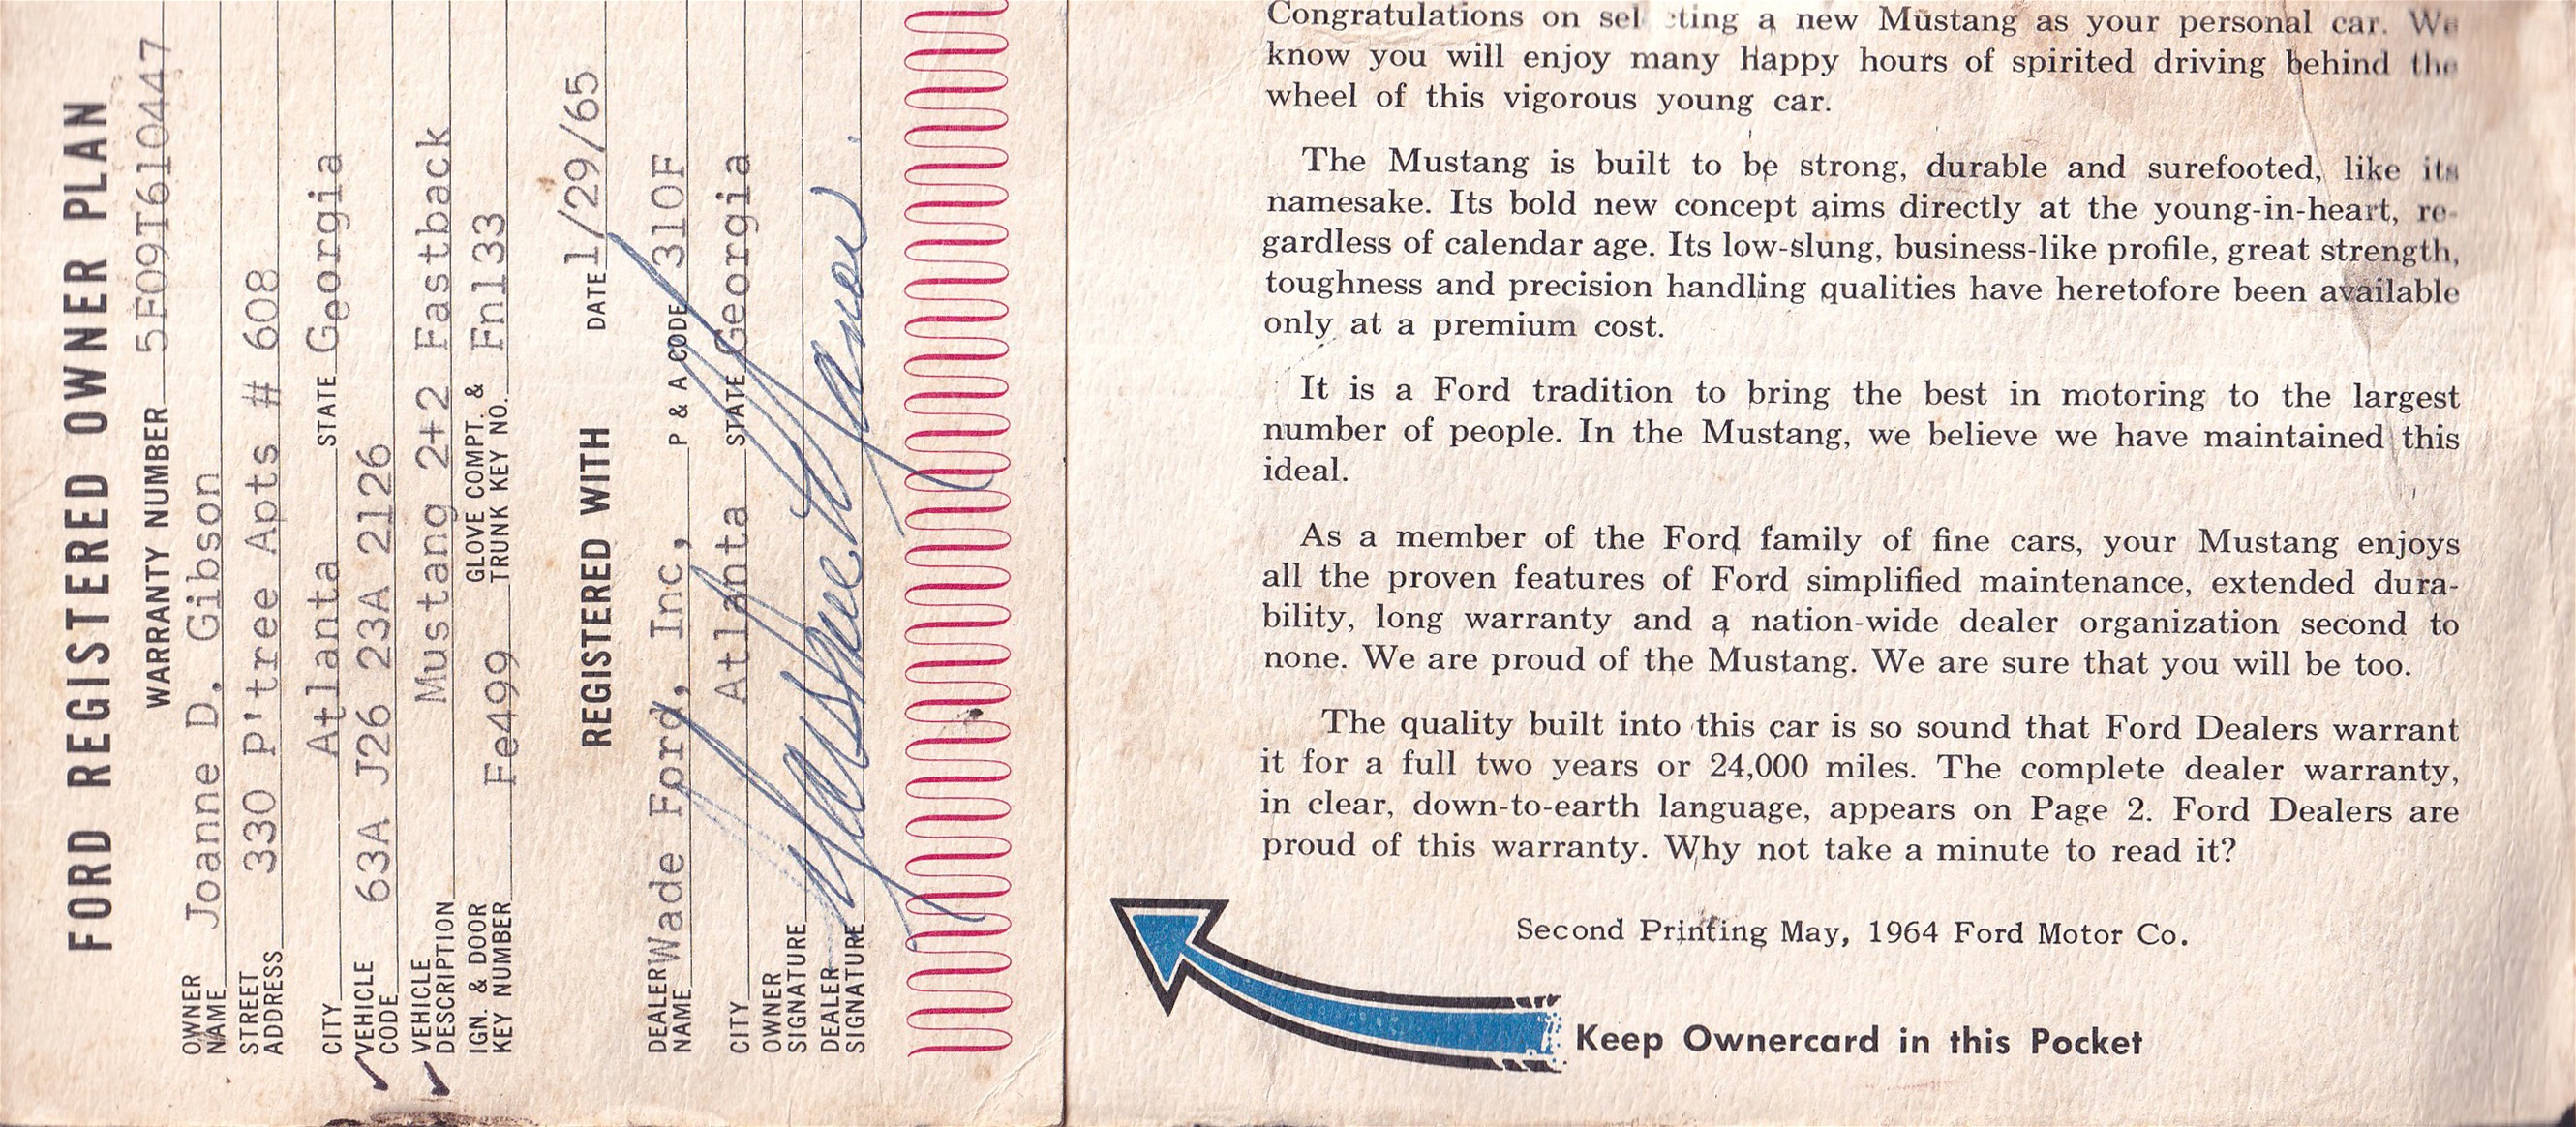 FORD REGISTERED OWNER PLAN
WARRANTY NUMBER 5F09T610447
OWNER NAME Joanne D. Gibson
STREET ADDRESS 330 P'tree Apts # 608
CITY Atlanta STATE Georgia
VEHICLE CODE 63A J26 23A 2126
VEHICLE DESCRIPTION Mustang 2+2 Fastback
IGN. & DOOR KEY NUMBER Fe499 GLOVE COMPT. & TRUNK KEY NO. Fn133
REGISTERED WITH DATE 1/29/65
DEALER NAME Wade Ford, Inc, P & A CODE 310F
CITY Atlanta STATE Georgia
OWNER SIGNATURE
DEALER SIGNATURE
Congratulations on sel cting a new Mustang as your personal car. We
know you will enjoy many happy hours of spirited driving behind the
wheel of this vigorous young car.
The Mustang is built to be strong, durable and surefooted, like its
namesake. Its bold new concept aims directly at the young-in-heart, re-
gardless of calendar age. Its low-slung, business-like profile, great strength,
toughness and precision handling qualities have heretofore been available
only at a premium cost.
It is a Ford tradition to bring the best in motoring to the largest
number of people. In the Mustang, we believe we have maintained this
ideal.
As a member of the Ford family of fine cars, your Mustang enjoys
all the proven features of Ford simplified maintenance, extended dura-
bility, long warranty and a nation-wide dealer organization second to
none. We are proud of the Mustang. We are sure that you will be too.
The quality built into this car is so sound that Ford Dealers warrant
it for a full two years or 24,000 miles. The complete dealer warranty,
in clear, down-to-earth language, appears on Page 2. Ford Dealers are
proud of this warranty. Why not take a minute to read it?
Second Printing May, 1964 Ford Motor Co.
Keep Ownercard in this Pocket